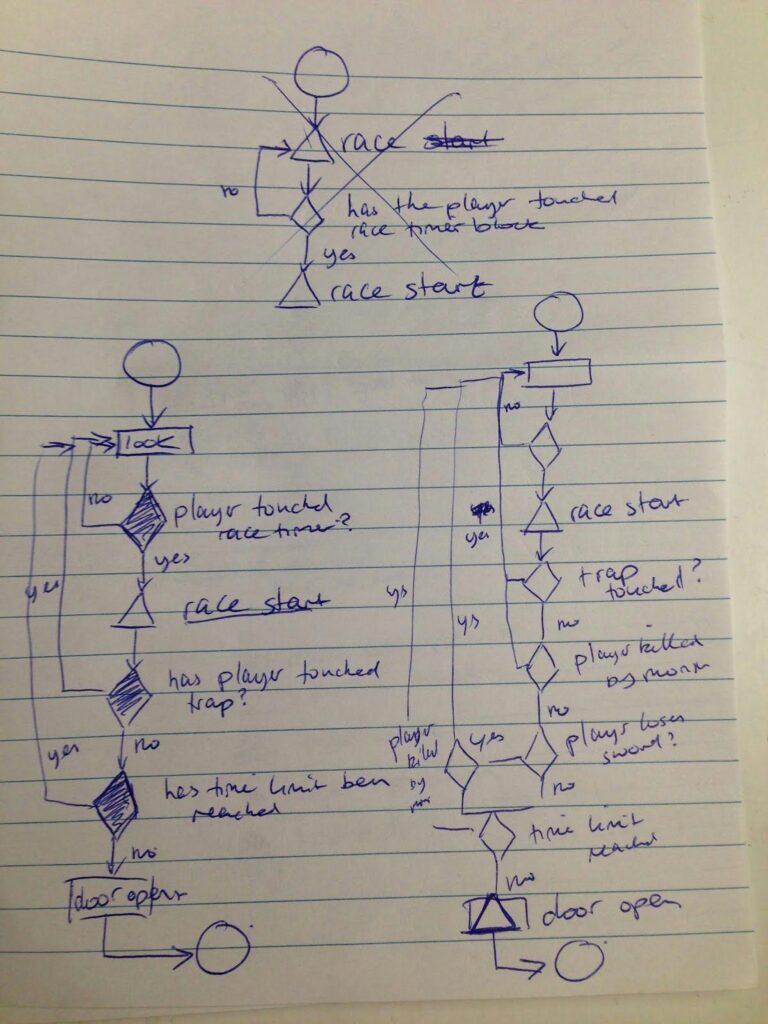 race start
no
has the player touched
race timer block
yes
race start
look
no
player touched
race timer?
yes
race start
yes
has player touched
trap?
no
yes
has time limit been
reached
no
door opens
no
race start
yes
trap
touched?
yes
no
yes
player killed
by
no
player loses
sword?
yes
player
killed
by
no
time limit
reached
no
door open